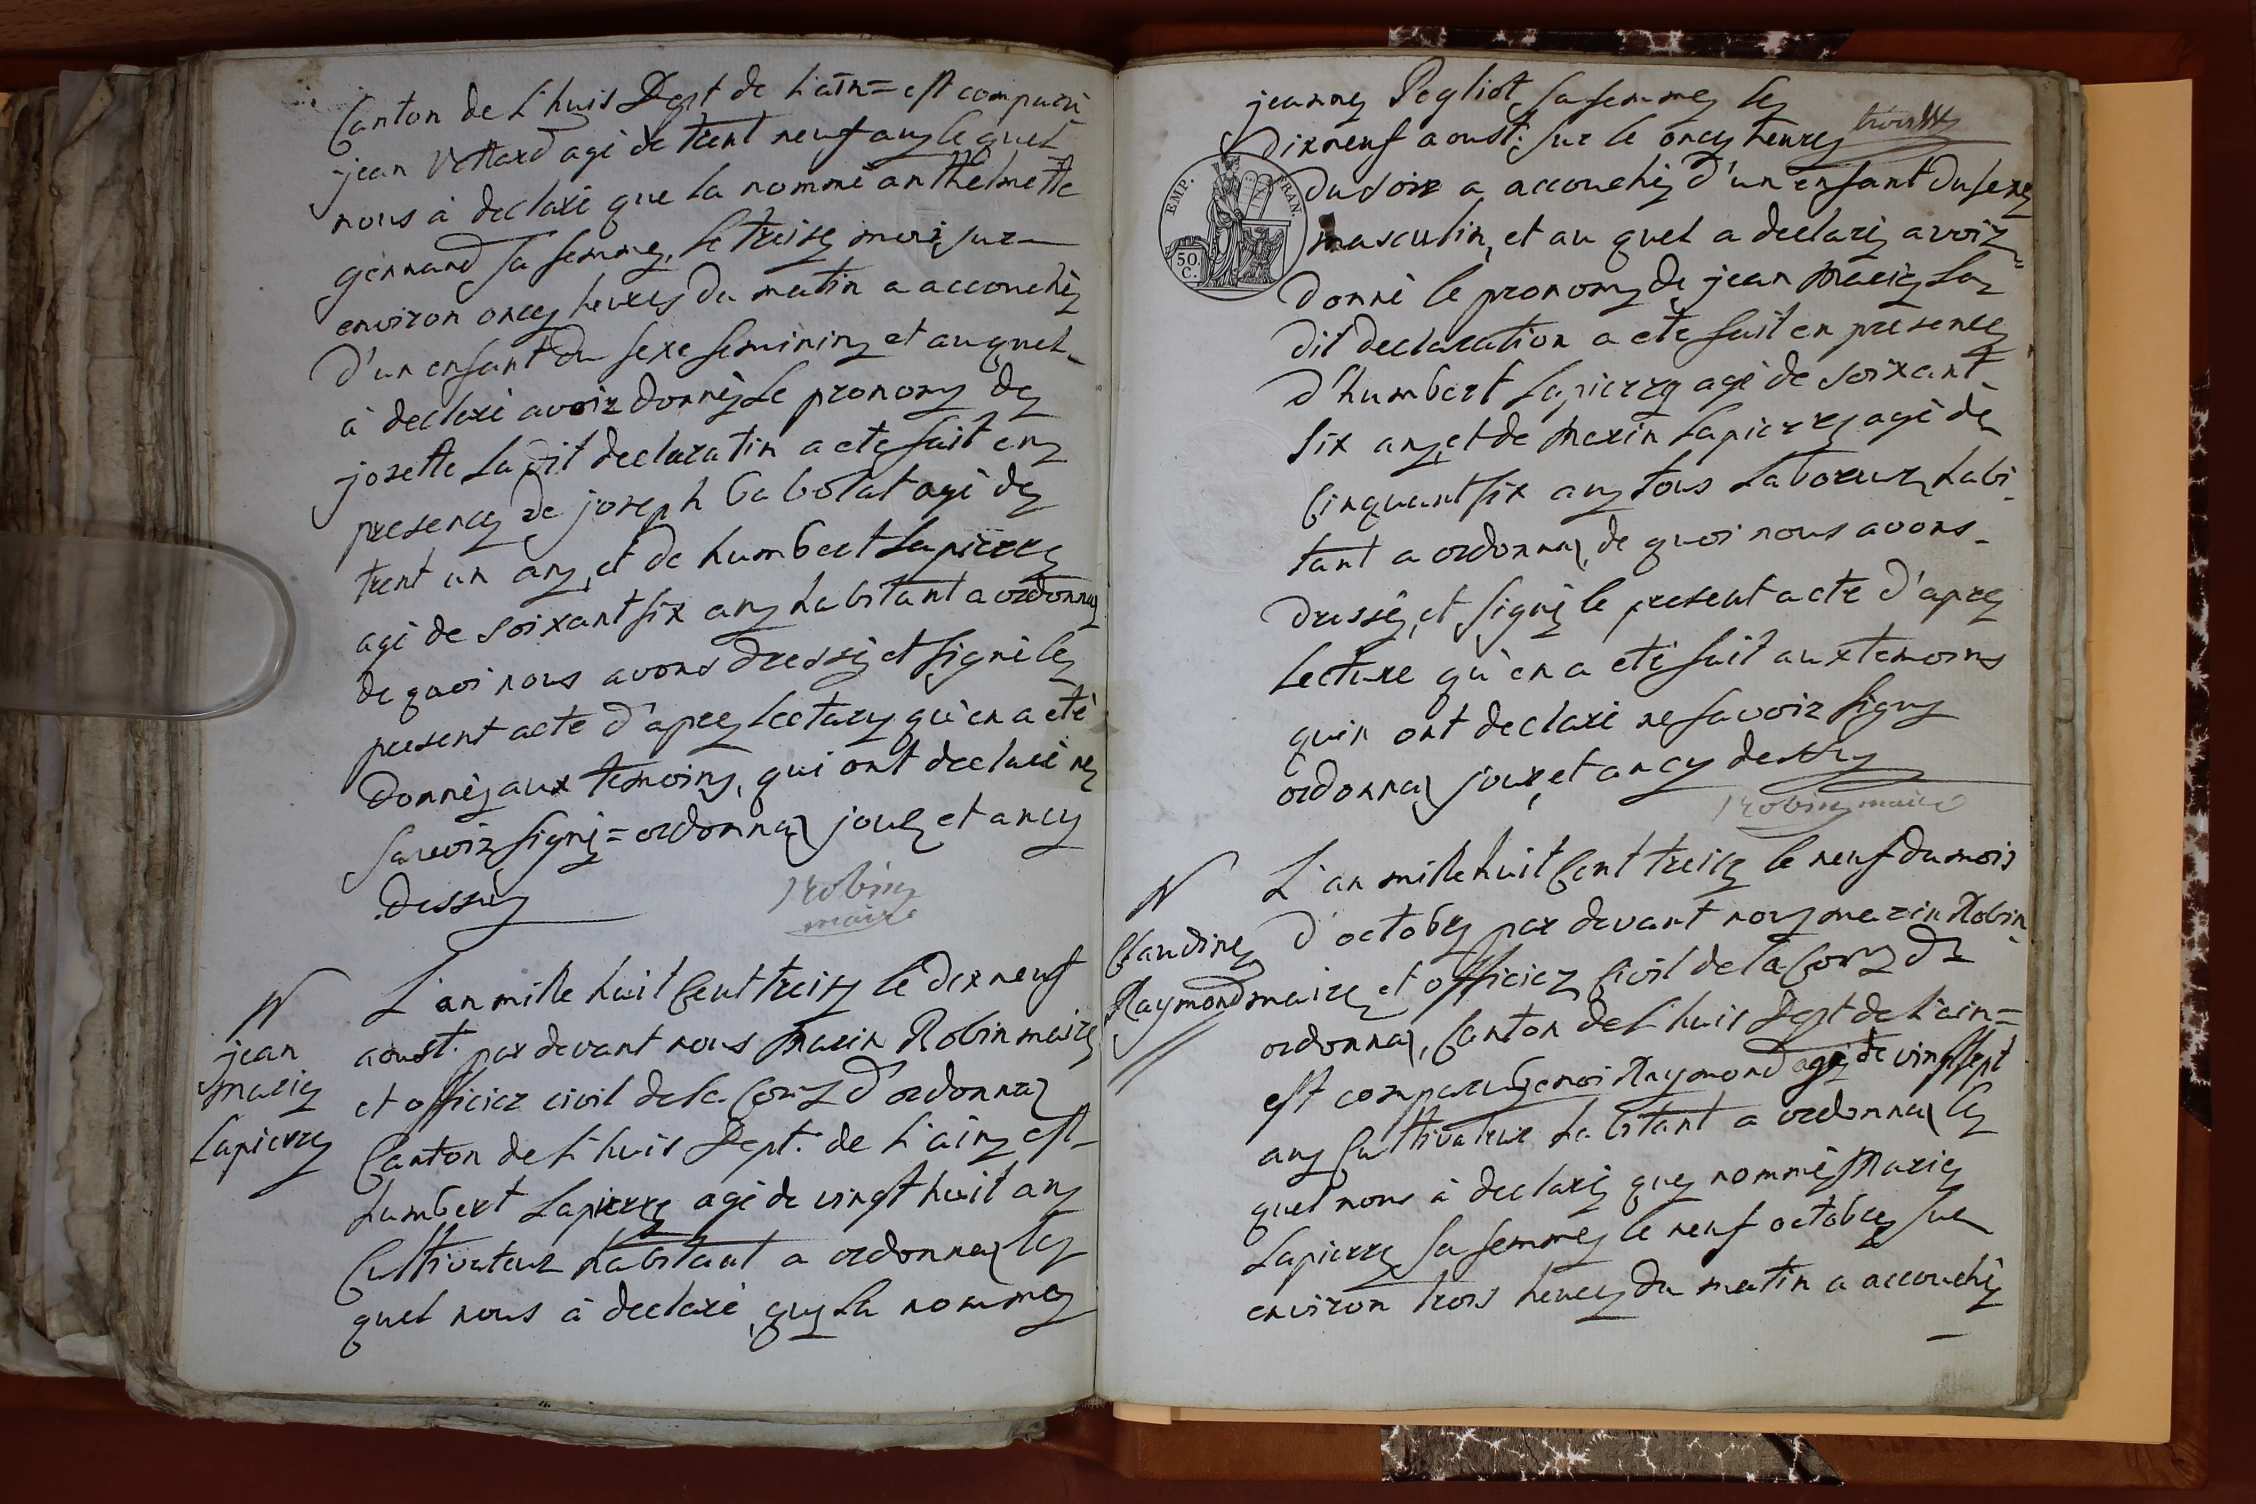 Canton de L'huis Dept de L'ain = est comparu
jean Vettard agé de trent neuf any lequel
nous à declaré que la nommé anthelmette
gennand sa femme, le treize mars sur
environ onze heures du matin a accouchéz
d'un enfant du sexe feminin et auquel
à declaré avoir donnéz le pronom de
josette La dit declaratin a ete fait en
presence de joseph Babolat agé de
trent un any, et de humbert Lapierre
agé de soixant six any habitant a ordonnaz
de quoi nous avons dressé et signé le
present acte d'apres lecture qu'en a eté
Donnéz aux temoins, qui ont declaré ne
savoir signé = ordonnaz jour et ancy
dessus
Robin
maire
N
jean
marie
Lapierre
L'an mille huit cent treize le dix neuf
aoust. par devant nous marin Robin maire
et officier civil de la Com d'ordonnaz
Canton de L'huis Dept. de L'ain est
humbert Lapierre agé de vingt huit any
Cultivateur habitant a ordonnaz le
quel nous à declaré que la nommez
jeanne Pegliot sa femme le
dix neuf aoust: sur le onze heures
EMP. FRAN.
50. C.
du soir a accouchéz d'un enfant du sexe
masculin, et au quel a declaréz avoir
donné le pronom de jean marie La
dit declaration a ete fait en presence
d'humbert Lapierre agé de soixant
six any, et de marin Lapierre agé de
Cinquant six any tous Laboreur habi
tant a ordonnaz, de quoi nous avons
dresséz, et signéz le present acte d'apres
Lecture qu'en a eté fait aux temoins
qu'in ont declaré ne savoir signy
ordonnaz jour, et ancy dessus
Robin maire
N
Claudine
Raymond
L'an mille huit Cent treize le neuf du mois
d'octobre par devant nous marin Robin
maire et officier Civil de la Com d
ordonnaz, Canton de L'huis Dept de L'ain =
est comparu benoi Raymond agé de vingt sept
any Cultivateur habitant a ordonnaz le
quel nous à declaréz que nommé Marie
Lapierre sa femme le neuf octobre sur
environ trois heures du matin a accouchéz